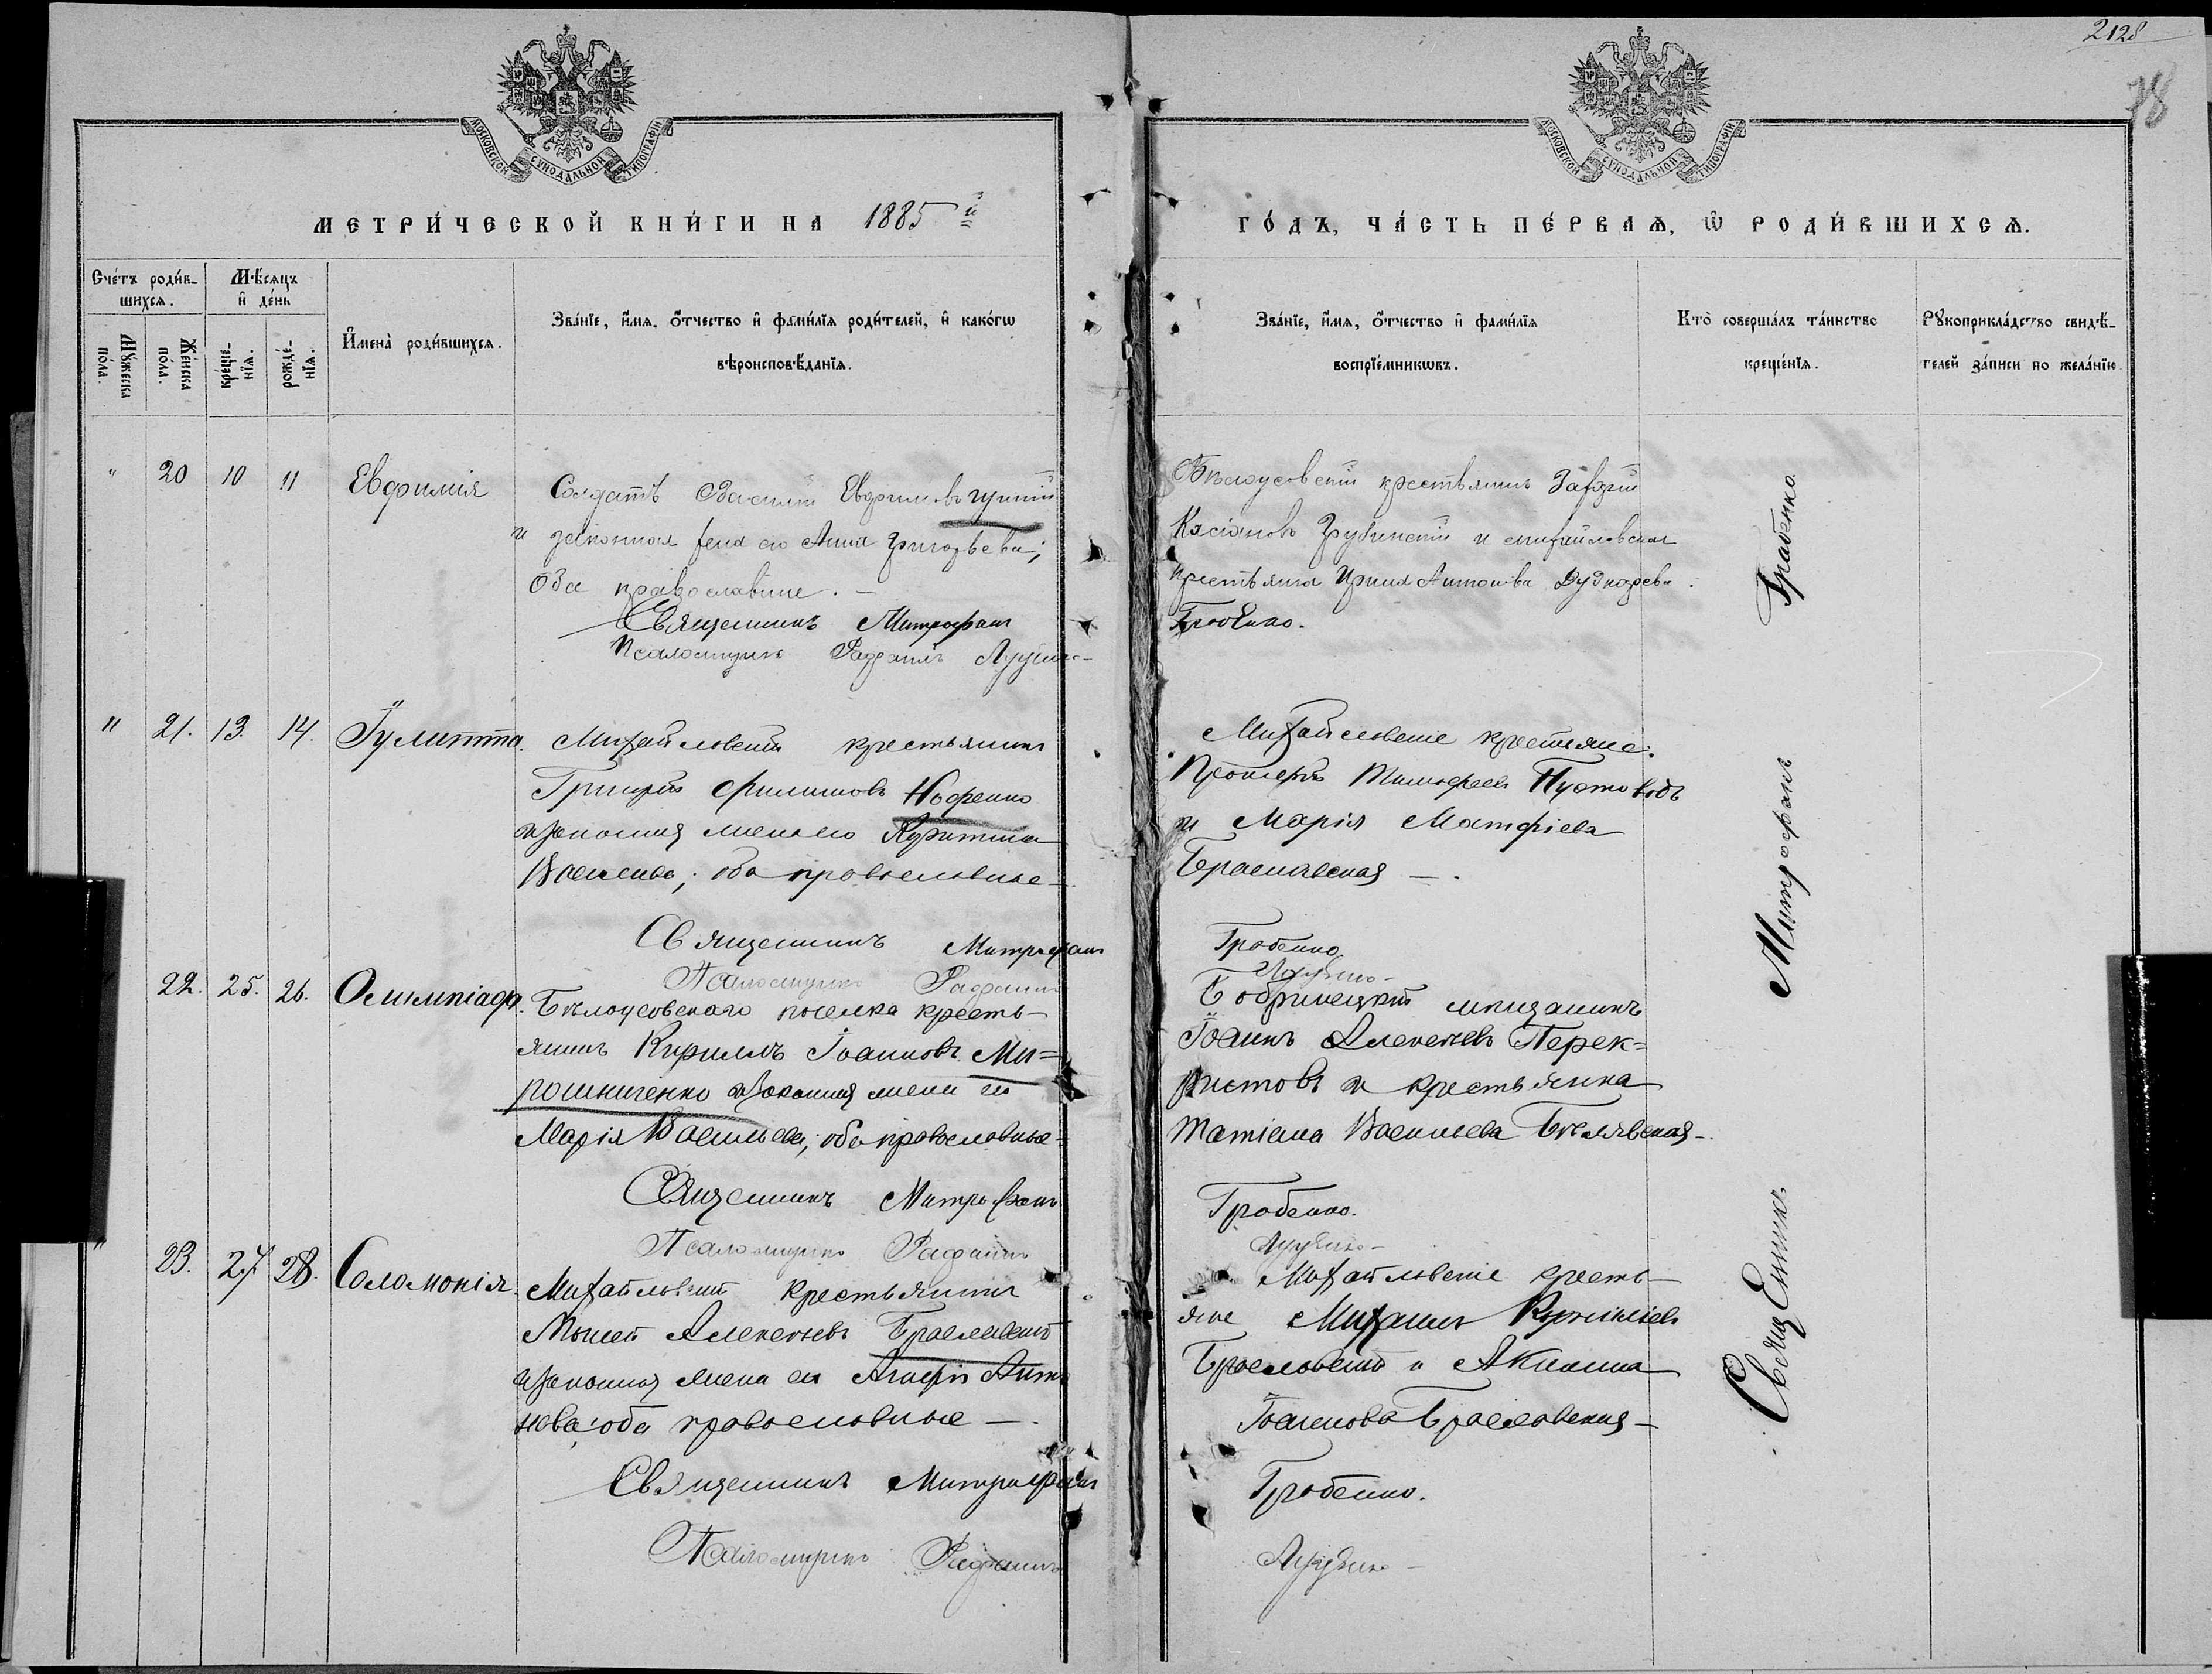 2128
78
МОСКОВСКОЙ СѴНОДАЛЬНОЙ ТИПОГРАФІИ
МОСКОВСКОЙ СѴНОДАЛЬНОЙ ТИПОГРАФІИ
МЕТРИ́ЧЕСКОЙ КНИ́ГИ НА 1885й
ГО́ДЪ, ЧА́СТЬ ПЕ́РВАѦ, Ѿ РОДИ́ВШИХСѦ.
Сче́тъ роди́в-
шихсѧ.
Мꙋ́жеска по́ла.
Же́нска по́ла.
Мѣ́сѧцъ
и де́нь
креще́-
нїѧ.
рожде́-
нїѧ.
И҆мена̀ роди́вшихсѧ.
Зва́нїе, и҆́мѧ, ѻ҆́тчество и҆ фами́лїѧ роди́телей, и҆ како́гѡ
вѣроисповѣ́данїѧ.
Зва́нїе, и҆́мѧ, ѻ҆́тчество и҆ фами́лїѧ
воспрїе́мникѡвъ.
Кто̀ соверша́лъ та́инство
креще́нїѧ.
Рꙋкоприкла́дство свидѣ́-
телей за́писи по жела́нїю.
" 20 10 11 Евфимія
Солдатъ Василій Евфимовъ
и законная жена его Анна Григорьева;
Оба православные. —
Священникъ Митрофанъ
Псаломщикъ Рафаилъ
Бѣлоусовскій крестьянинъ
Касіановъ и Михайловская
крестьянка Ирина Антонова
Грабенко.
" 21. 13. 14. Іулитта.
Михайловскій крестьянинъ
Григорій Филиповъ
и законная жена его
Васильева; оба православные —.
Священникъ Митрофанъ
Псаломщикъ Рафаилъ
Михайловскіе крестьяне:
Прокофій Тимофеевъ Пустоводъ
и Марія Матфіева
Браславская —.
Грабенко
22. 25. 26. Олимпіада.
Бѣлоусовскаго поселка кресть-
янинъ Кириллъ Іоанновъ Ми=
рошниченко и законная жена его
Марія Васильева; оба православные =
Священникъ Митрофанъ
Псаломщикъ Рафаилъ
Бобринецкій мѣщанинъ
Іоаннъ Алексѣевъ Перек=
ристовъ и крестьянка
Татіана Васильева Бѣлявская —.
Грабенко.
" 23. 27. 28. Соломонія.
Михайловскій крестьянинъ
Моисей Алексѣевъ Браславскій
и законная жена его Агафія Анто
нова; оба православные —.
Священникъ Митрофанъ
Псаломщикъ Рафаилъ
Михайловскіе кресть-
яне Михаилъ
Браславскій и Акилина
Іоаннова Браславская —
Грабенко.
Священникъ Митрофанъ Грабенко